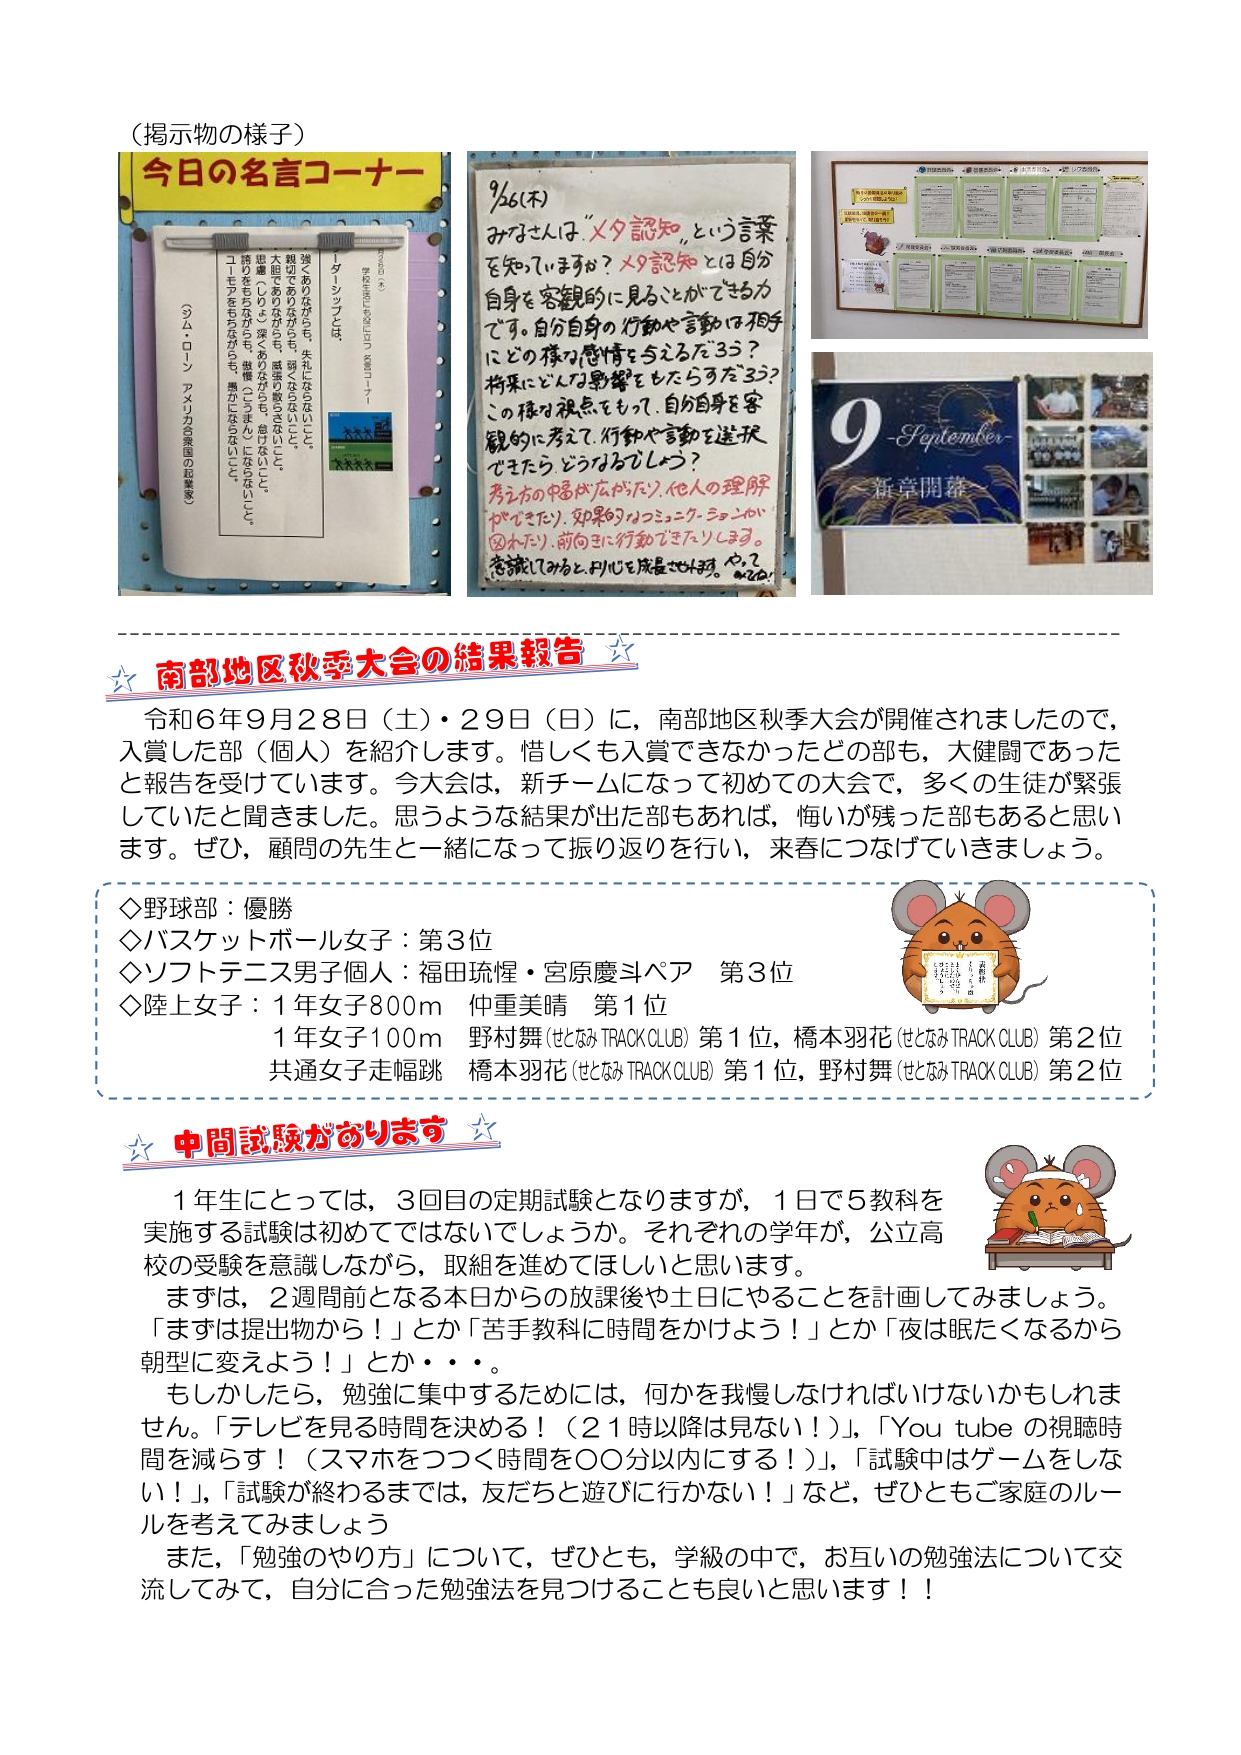 （掲示物の様子）
今日の名言コーナー
学校生活にも役に立つ 名言コーナー
リーダーシップとは、
強くありながらも、失礼にならないこと。
親切でありながらも、弱くならないこと。
大胆でありながらも、威張り散らさないこと。
思慮（しりょ）深くありながらも、怠けないこと。
誇りをもちながらも、傲慢（ごうまん）にならないこと。
ユーモアをもちながらも、愚かにならないこと。
（ジム・ローン アメリカ合衆国の起業家）
9/26(木)
みなさんは“メタ認知„という言葉
を知っていますか？メタ認知とは自分
自身を客観的に見ることができる力
です。自分自身の行動や言動は相手
にどの様な感情を与えるだろう？
将来にどんな影響をもたらすだろう？
この様な視点をもって、自分自身を客
観的に考えて、行動や言動を選択
できたら、どうなるでしょう？
考え方の幅が広がったり、他人の理解
ができたり、効果的なコミュニケーションが
図れたり、前向きに行動できたりします。
意識してみると、より心を成長させれます。やってみてね！
9 -September-
～新章開幕～
☆ 南部地区秋季大会の結果報告 ☆
令和６年９月２８日（土）・２９日（日）に，南部地区秋季大会が開催されましたので，
入賞した部（個人）を紹介します。惜しくも入賞できなかったどの部も，大健闘であった
と報告を受けています。今大会は，新チームになって初めての大会で，多くの生徒が緊張
していたと聞きました。思うような結果が出た部もあれば，悔いが残った部もあると思い
ます。ぜひ，顧問の先生と一緒になって振り返りを行い，来春につなげていきましょう。
◇野球部：優勝
◇バスケットボール女子：第３位
◇ソフトテニス男子個人：福田琉惺・宮原慶斗ペア　第３位
◇陸上女子：１年女子800ｍ　仲重美晴　第１位
１年女子100ｍ　野村舞(せとなみ TRACK CLUB) 第１位，橋本羽花(せとなみ TRACK CLUB) 第２位
共通女子走幅跳　橋本羽花(せとなみ TRACK CLUB) 第１位，野村舞(せとなみ TRACK CLUB) 第２位
表彰状
☆ 中間試験があります ☆
１年生にとっては，３回目の定期試験となりますが，１日で５教科を
実施する試験は初めてではないでしょうか。それぞれの学年が，公立高
校の受験を意識しながら，取組を進めてほしいと思います。
まずは，２週間前となる本日からの放課後や土日にやることを計画してみましょう。
「まずは提出物から！」とか「苦手教科に時間をかけよう！」とか「夜は眠たくなるから
朝型に変えよう！」とか・・・。
もしかしたら，勉強に集中するためには，何かを我慢しなければいけないかもしれま
せん。「テレビを見る時間を決める！（２１時以降は見ない！）」，「You tube の視聴時
間を減らす！（スマホをつつく時間を〇〇分以内にする！）」，「試験中はゲームをしな
い！」，「試験が終わるまでは，友だちと遊びに行かない！」など，ぜひともご家庭のルー
ルを考えてみましょう
また，「勉強のやり方」について，ぜひとも，学級の中で，お互いの勉強法について交
流してみて，自分に合った勉強法を見つけることも良いと思います！！